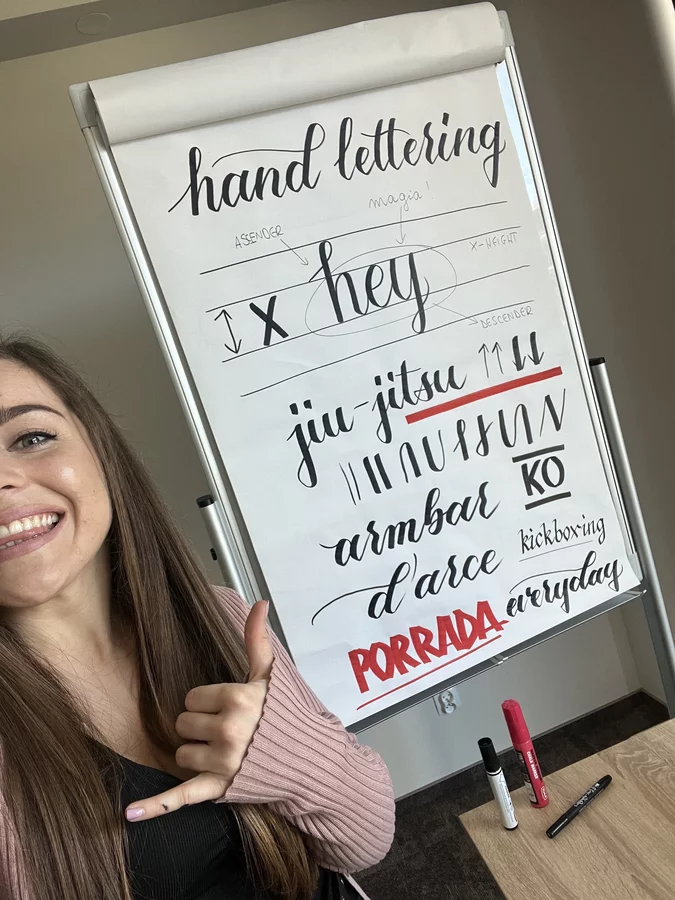 hand lettering
magia!
ASSENDER
X-HEIGHT
x hey
DESCENDER
jiu-jitsu
armbar
KO
kickboxing
d'arce
everyday
PORRADA